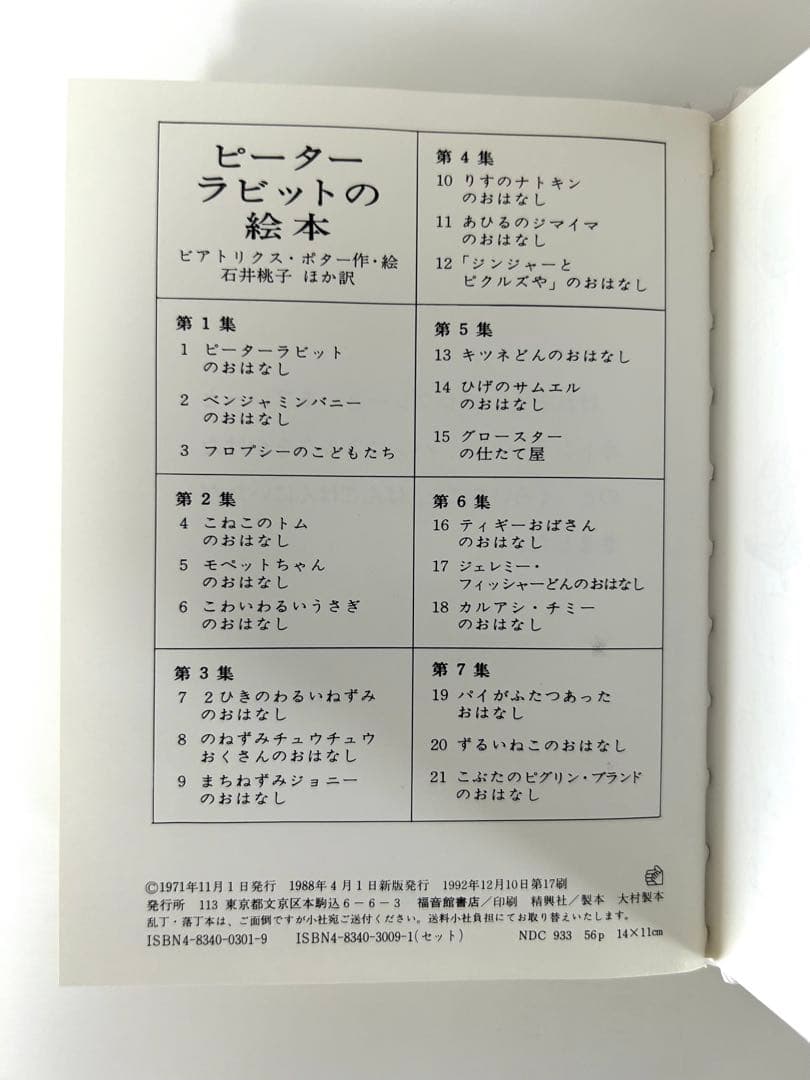 ピーター
ラビットの
絵本
ビアトリクス・ポター作・絵
石井桃子 ほか訳
第1集
1 ピーターラビット
のおはなし
2 ベンジャミンバニー
のおはなし
3 フロプシーのこどもたち
第2集
4 こねこのトム
のおはなし
5 モペットちゃん
のおはなし
6 こわいわるいうさぎ
のおはなし
第3集
7 2ひきのわるいねずみ
のおはなし
8 のねずみチュウチュウ
おくさんのおはなし
9 まちねずみジョニー
のおはなし
第4集
10 りすのナトキン
のおはなし
11 あひるのジマイマ
のおはなし
12 「ジンジャーと
ピクルズや」のおはなし
第5集
13 キツネどんのおはなし
14 ひげのサムエル
のおはなし
15 グロースター
の仕たて屋
第6集
16 ティギーおばさん
のおはなし
17 ジェレミー・
フィッシャーどんのおはなし
18 カルアシ・チミー
のおはなし
第7集
19 パイがふたつあった
おはなし
20 ずるいねこのおはなし
21 こぶたのピグリン・ブランド
のおはなし
©1971年11月1日発行 1988年4月1日新版発行 1992年12月10日第17刷
発行所 113 東京都文京区本駒込6-6-3 福音館書店/印刷 精興社/製本 大村製本
乱丁・落丁本は、ご面倒ですが小社宛ご送付ください。送料小社負担にてお取り替えいたします。
ISBN4-8340-0301-9 ISBN4-8340-3009-1(セット) NDC 933 56p 14×11cm